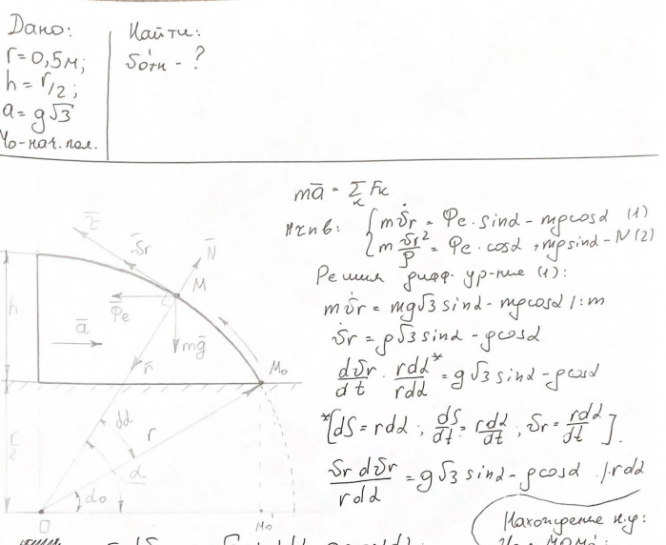 Дано:
r = 0,5 м;
h = r/2;
a = g√3
М₀ - нач. пол.
Найти:
υотн - ?
mā = Σ F̄к
к
{ mυ̇r = Φe · sinα - mgcosα (1)
{ m υr²/ρ = Φe · cosα + mgsinα - N (2)
Решим дифф. ур-ние (1):
mυ̇r = mg√3 sinα - mgcosα /: m
υ̇r = g√3 sinα - gcosα
dυr/dt · rdα/rdα * = g√3 sinα - gcosα
*[dS = rdα; dS/dt = rdα/dt; υr = rdα/dt].
υr dυr/rdα = g√3 sinα - gcosα /· rdα
Нахождение н.у:
τ̄
ῡr
N̄
M
Φ̄e
h
ā
mḡ
n̄
M₀
dα
r
r/2
α
α₀
O
M₀'